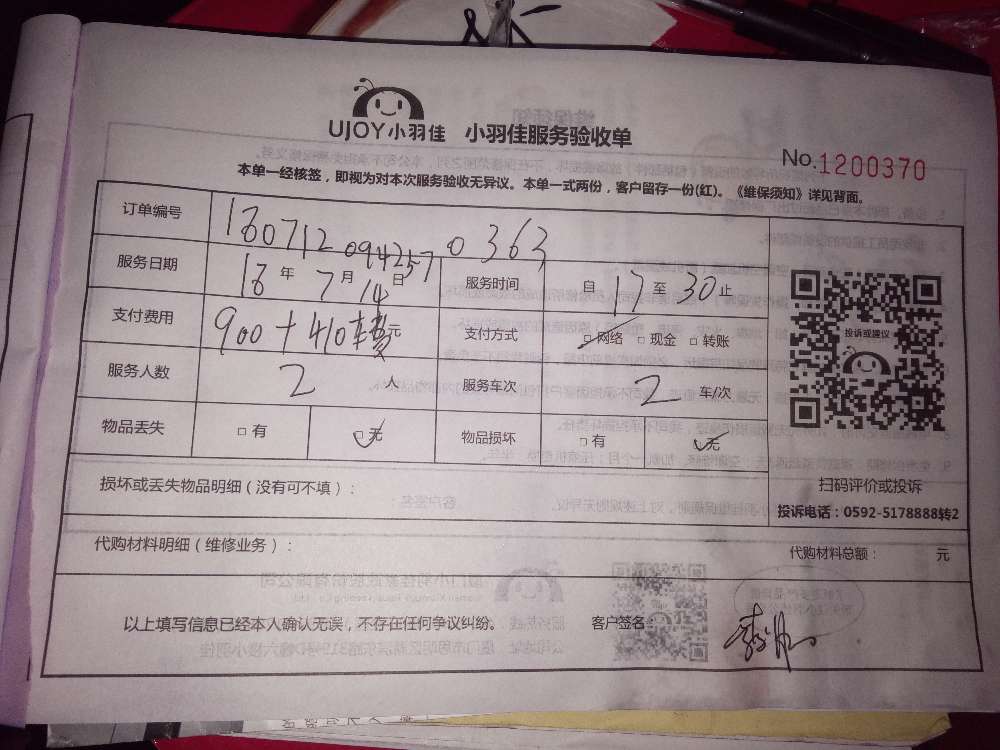 UJOY小羽佳 小羽佳服务验收单
No.1200370
本单一经核签，即视为对本次服务验收无异议。本单一式两份，客户留存一份(红)。《维保须知》详见背面。
订单编号 160712 094257 0363
服务日期 16年7月14日 服务时间 自17至30止
支付费用 900+410楼费元 支付方式 □网络 □现金 □转账
投诉或建议
服务人数 2人 服务车次 2车/次
物品丢失 □有 □无 物品损坏 □有 □无
损坏或丢失物品明细（没有可不填）：
扫码评价或投诉
投诉电话：0592-5178888转2
代购材料明细（维修业务）： 代购材料总额： 元
以上填写信息已经本人确认无误，不存在任何争议纠纷。 客户签名：